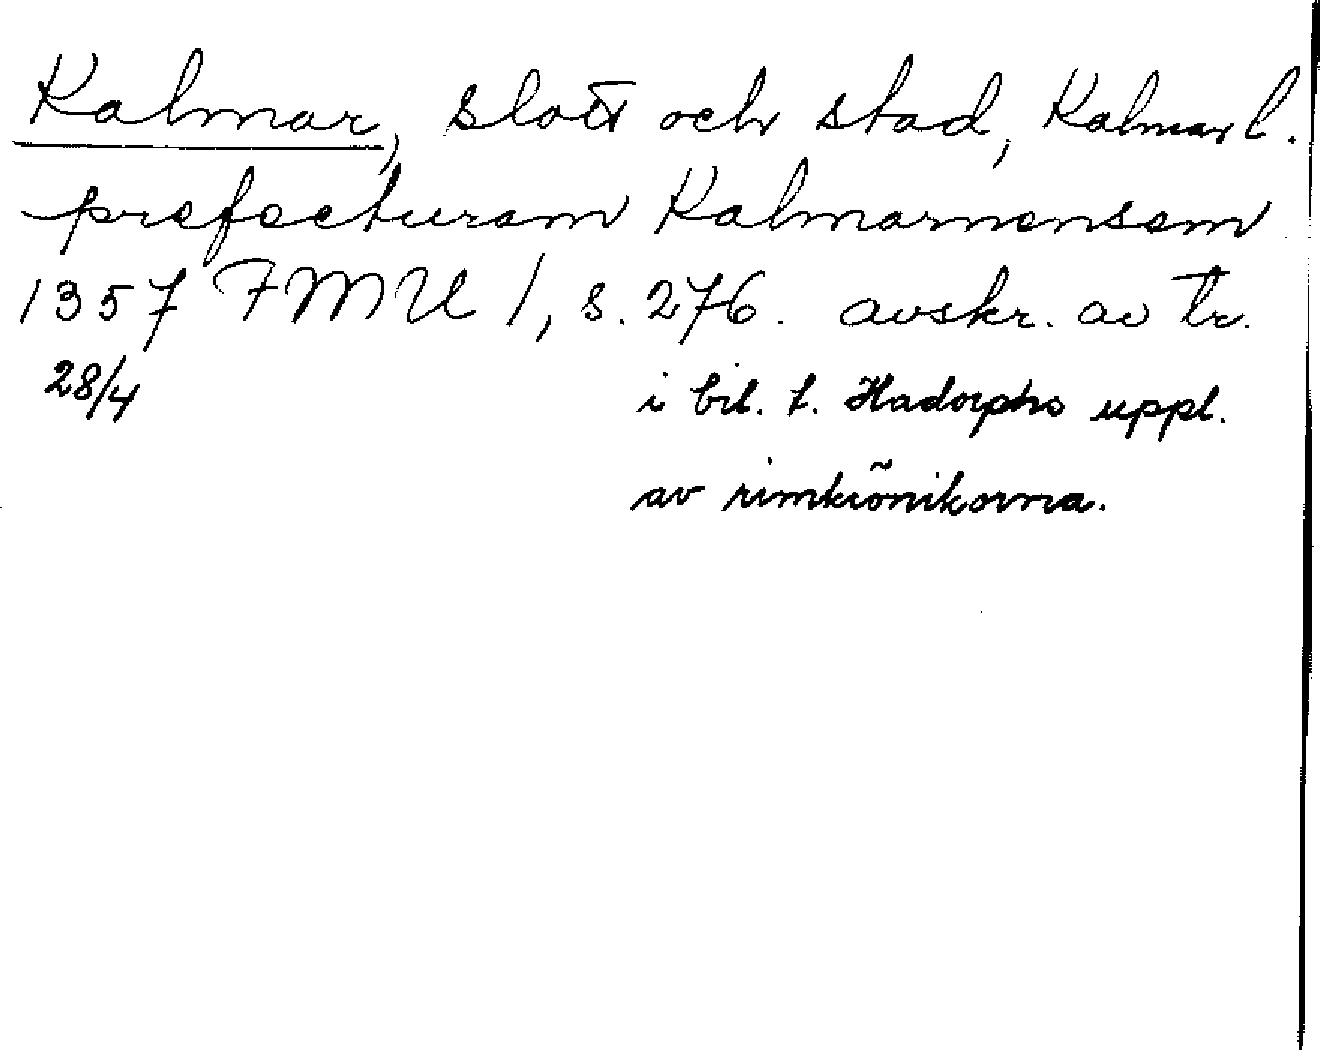 Kalmar, slott och stad, Kalmar l.
prefecturam Kalmarnensem
1357 FMU 1, s. 276. avskr. av tr.
28/4 i bil. t. Hadorphs uppl.
av rimkrönikorna.